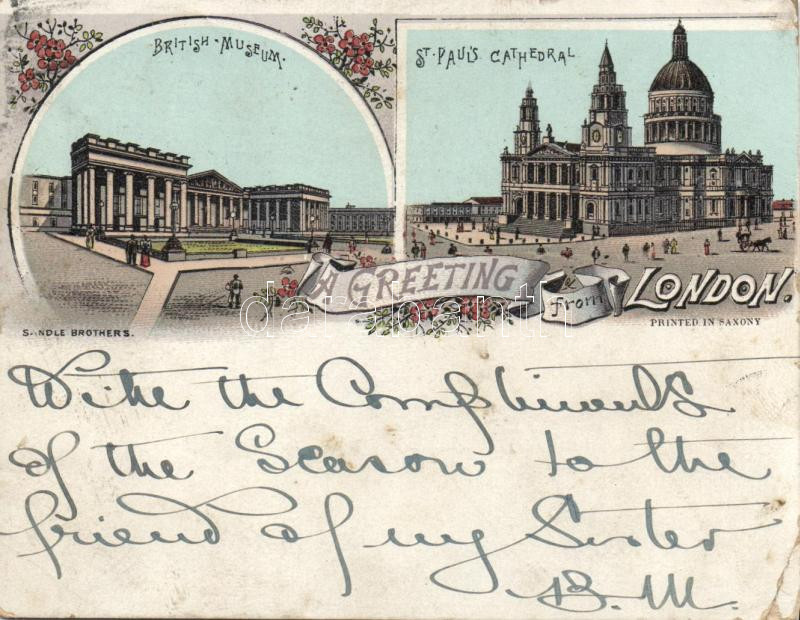 BRITISH-MUSEUM.
ST. PAUL'S CATHEDRAL
A GREETING from LONDON.
S NDLE BROTHERS.
PRINTED IN SAXONY
darabanth
With the Compliments
of the Season to the
friend of my Sister
B. M.